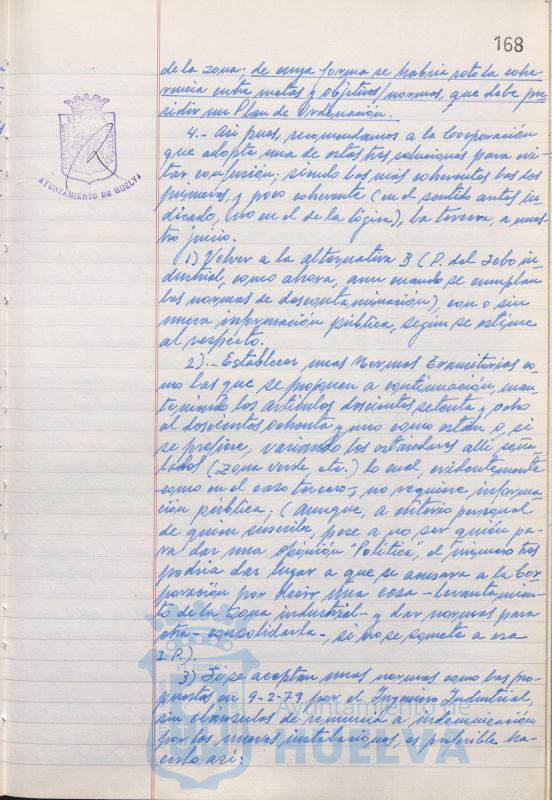 168
de la zona; de cuya forma se habría roto la cohe-
rencia entre metas y objetivos/normas, que debe pre-
sidir un Plan de Ordenación.
4.- Así pues, recomendamos a la Corporación
que adopte una de estas tres soluciones para evi-
tar confusión; siendo las más coherentes las dos
primeras, y poco coherente (en el sentido antes in-
dicado, (no en el de la lógica), la tercera, a nues-
tro juicio.
1) Volver a la alternativa B (P. del Sebo in-
dustrial, como ahora, aun cuando se cumplan
las normas de descontaminación), con o sin
nueva información pública, según se estime
al respecto.
2).- Establecer unas Normas Transitorias co-
mo las que se proponen a continuación, man-
teniendo los artículos doscientos setenta y ocho
al doscientos ochenta y uno como están o, si
se prefiere, variando los estándares allí seña-
lados (zona verde, etc.) lo cual, evidentemente
como en el caso tercero-, no requiere informa-
ción pública; (aunque, a criterio personal
de quien suscribe, pese a no ser quién pa-
ra dar una opinión "Política", el
podría dar lugar a que se acusara a la Cor-
poración por decir una cosa - levantamien-
to de la zona industrial - y dar normas para
otra - consolidarla -, si no se somete a esa
I.P.).
3) Si se aceptan unas normas como las pro-
puestas en 9-2-79 por el Ingeniero Industrial,
sin cláusulas de renuncia a indemnización
por las nuevas instalaciones, es preferible ha-
cerlo así:
AYUNTAMIENTO DE HUELVA
Ayuntamiento de
HUELVA